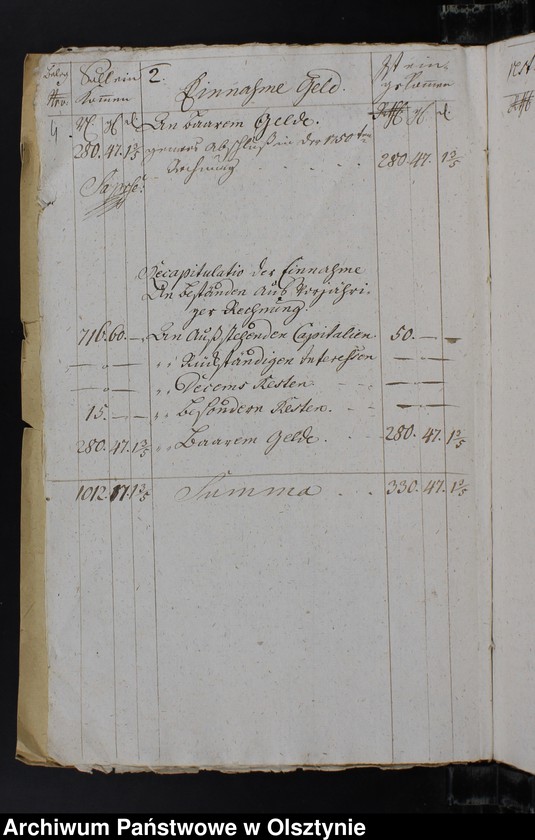 Soll ein 2. Ist ein-
No: kommen Einnahme Geld. gekommen
4. An baarem Gelde.
280. 47. 1 3/5 Abschluß in der 1750ten
Rechnung . . . . 280. 47. 1 3/5
Recapitulatio der Einnahme
An beständen aus vorjähri-
ger Rechnung.
716. 60. — An Ausstehenden Capitalien 50. — —
— " — „ Rückständigen Interessen — — —
— " — „ Decems Resten — — — —
15. — — „ besondern Resten. — — —
280. 47. 1 3/5 „ Baarem Gelde. 280. 47. 1 3/5
1012. 17. 1 3/5 Summa . . 330. 47. 1 3/5
Archiwum Państwowe w Olsztynie